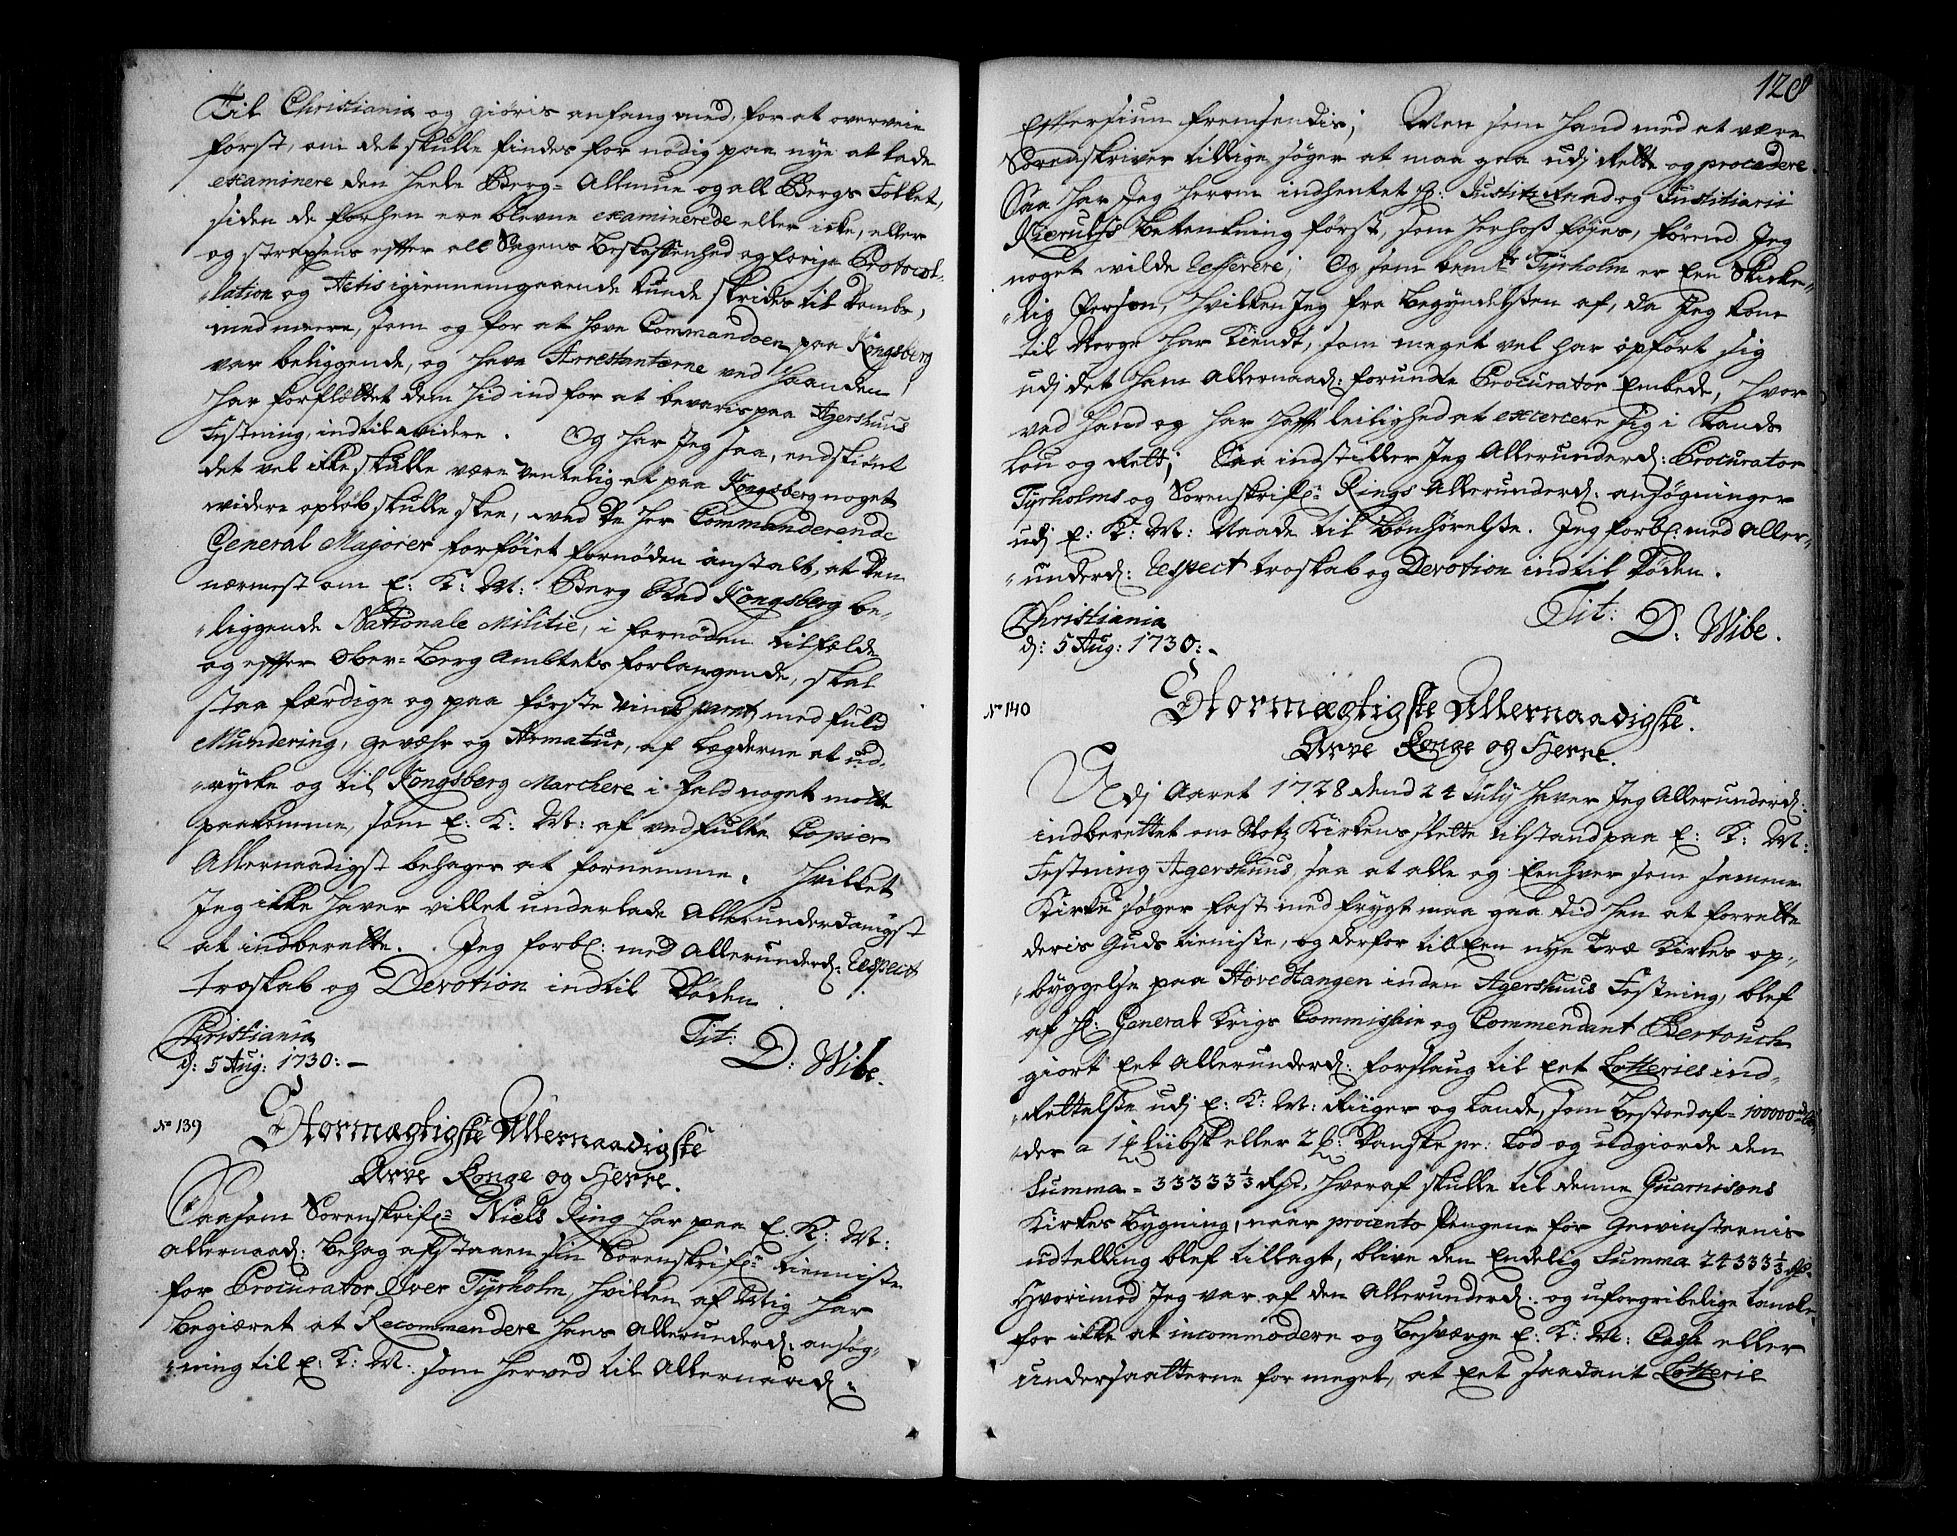 Til Christiania og giøris anfang med, for at overveie
først, om det skulle findes for nødig paa nye at lade
examinere den heele Berg-Allmue og all Bergs Folket,
siden de forhen ere blevne examinerede eller icke, eller
og straxens efter all Sagens Beskaffenhed og forige Protocol-
lation og Actis igiennemgaaende kunde skrides til Dombs,
med meere, som og for at have Commandoen paa Kongsberg
var beliggende, og have Arrestanterne ved Haanden,
har forfløttet dem hid ind for at bevaris paa Agershuus
Festning, indtil widere. Og har Jeg saa, endskiønt
det vel ikke skulle være ventelig at paa Kongsberg noget
widere opløb skulle skee, med de her Commanderende
General Majorer forføiet fornøden anstalt, at den
nærmest om E: K: M: Berg Stad Kongsberg be-
liggende Nationale Militie, i fornøden tilfælde
og effter Ober-Berg Ambtets forlangende, skal
staa færdige og paa første vink parat med fuld
Mundering, gevæhr og Armatur, af Lægderne at ud-
rycke og til Kongsberg Marchere i fald noget motte
paakomme, som E: K: M: af vedfulte Copier
Allernaadigst behager at fornemme. Hvilket
Jeg ikke haver villet underlade Allerunderdanigst
at indberette. Jeg forbl: med Allerunderd: Respect
troskab og Devotion indtil Døden.
Christiania Tit:
d: 5 Aug: 1730:- D: Wibe.
No 139 Stormægtigste Allernaadigste
Arve Konge og Herre.
Saasom Sorenskrifr Niels Ring har paa E. K: M:
allernaad: behag afstaaen sin Sorenskrifr tienniste
for Procurator Iver Tyrholm, hvilken af Mig har
begiæret at Recommendere hans Allerunderd: ansøg-
ning til E: K: M: som herved til Allernaad:
128
Effersiun fremsendis; Men som hand med at være
Sorenskriver tillige søger at maa gaa udj Rette og procedere
Saa har Jeg herom indhentet H: Justitz Raad og Justitiarii
Kierulfs betenkning først, som herhoß føyes, førend Jeg
noget wilde Referere; Og som bemte Tyrholm er Een Skicke-
lig Person, hvilken Jeg fra begyndelsen af, da Jeg kom
til Norge har kiendt, som meget vel har opført sig
udj det ham Allernaad: forundte Procurator Embede, hvor
ved hand og har hafft leilighed at exercere sig i Lands
Lou og Rett; Saa indstiller Jeg Allerunderd: Procurator
Tyrholms og Sorenskrifr Rings Allerunderd: ansøgninger
udj E: K: M: Naade til bønhørelse. Jeg forbl: med Aller-
underd: Respect troskab og Devotion indtil Døden.
Christiania Tit:
d: 5 Aug: 1730:- D: Wibe.
No 140 Stormægtigste Allernaadigste
Arve Konge og Herre.
Udj Aaret 1728 dend 24 July haver Jeg Allerunderd:
indberettet om Slotz Kirkens slette tilstand paa E: K: M:
Festning Agershuus, saa at alle og Eenhver som samme
Kirke søger fast med frygt maa gaa did hen at forrette
deris Guds tieniste, og derfor til Een nye Træ Kirkes op-
byggelse paa Hovedtangen inden Agershuus Festning, blef
af H: General Krigs Commissair og Commendant Bertouch
giort Eet Allerunderd: forslaug til Eet Lotteries ind-
Rettelse udj E: K: M: Riiger og Lande, som bestoed af 100000
der a 1 ß Liibsk eller 2 ß: Danske pr: Lod og udgiorde den
Summa - 33333⅓ Rd, hvoraf skulle til denne Guarnisons
Kirkes bygning, naar procento Pengene for Gevinsternis
udtelling blef tillagt, blive den Endelig Summa 24333⅓ Rd.
Hvorimod Jeg var af den Allerunderd: og uforgribelige tanke
for ikke at incommodere og besværge E: K: M: Cassa eller
undersaatterne for meget, at Eet saadant Lotterie